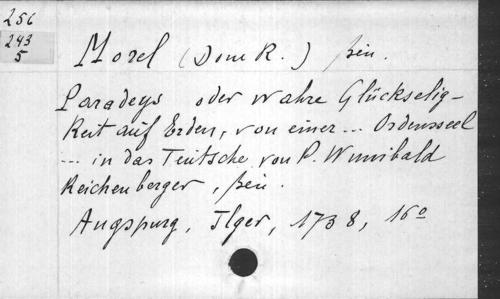 256
243
5
Morel (Dom R.)
Paradeys oder wahre Glückselig-
keit auf Erden, von einer ... Ordensseel
... in das Teutsche von P. Wunibald
Reichenberger,
Augspurg, Ilger, 1738, 16°